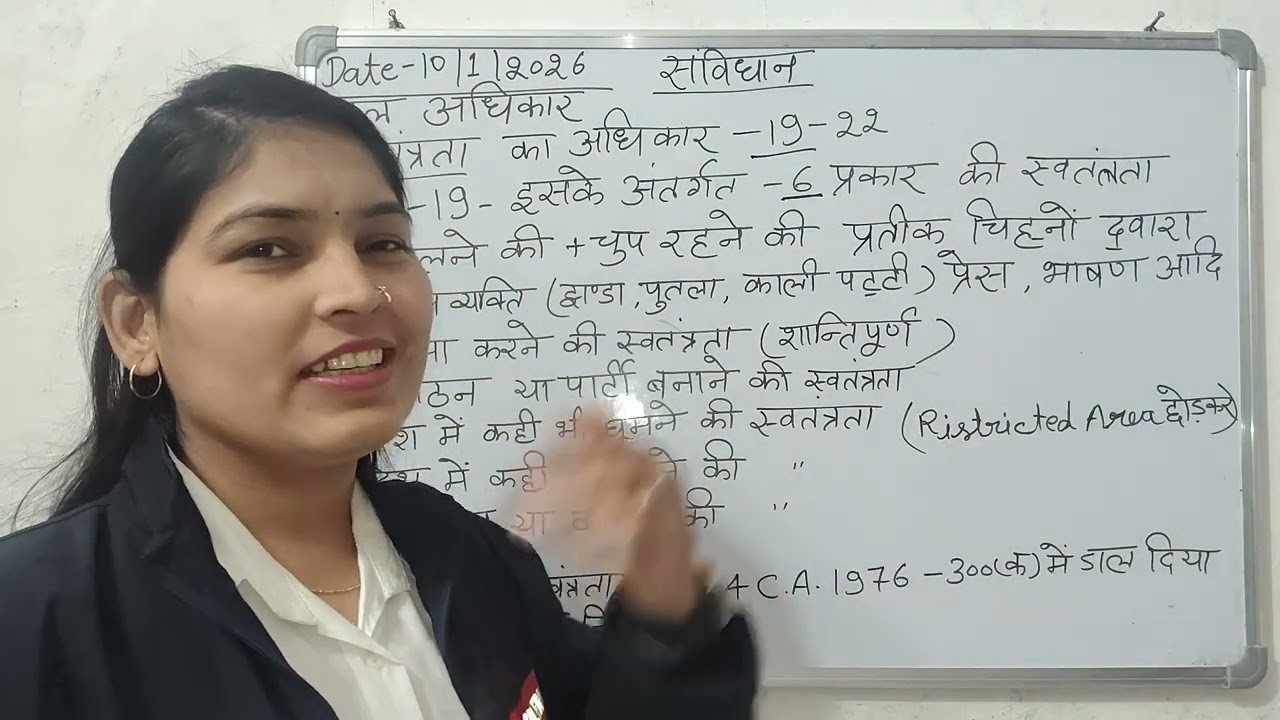 Date-10/1/2026 संविधान
अधिकार
का अधिकार -19-22
-19- इसके अंतर्गत -6 प्रकार की स्वतंत्रता
की + चुप रहने की प्रतीक चिह्नों द्वारा
व्यक्ति (झण्डा, पुतला, काली पट्टी) प्रेस, भाषण आदि
करने की स्वतंत्रता (शान्तिपूर्ण)
या पार्टी बनाने की स्वतंत्रता
में कही भी घूमने की स्वतंत्रता (Ristricted Area छोड़कर)
में कही की "
या की "
4 C.A. 1976 - 300(क) में डाल दिया